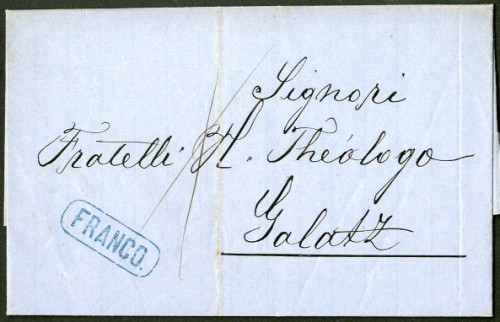 Signori
Fratelli H. Théologo
Galatz
FRANCO.